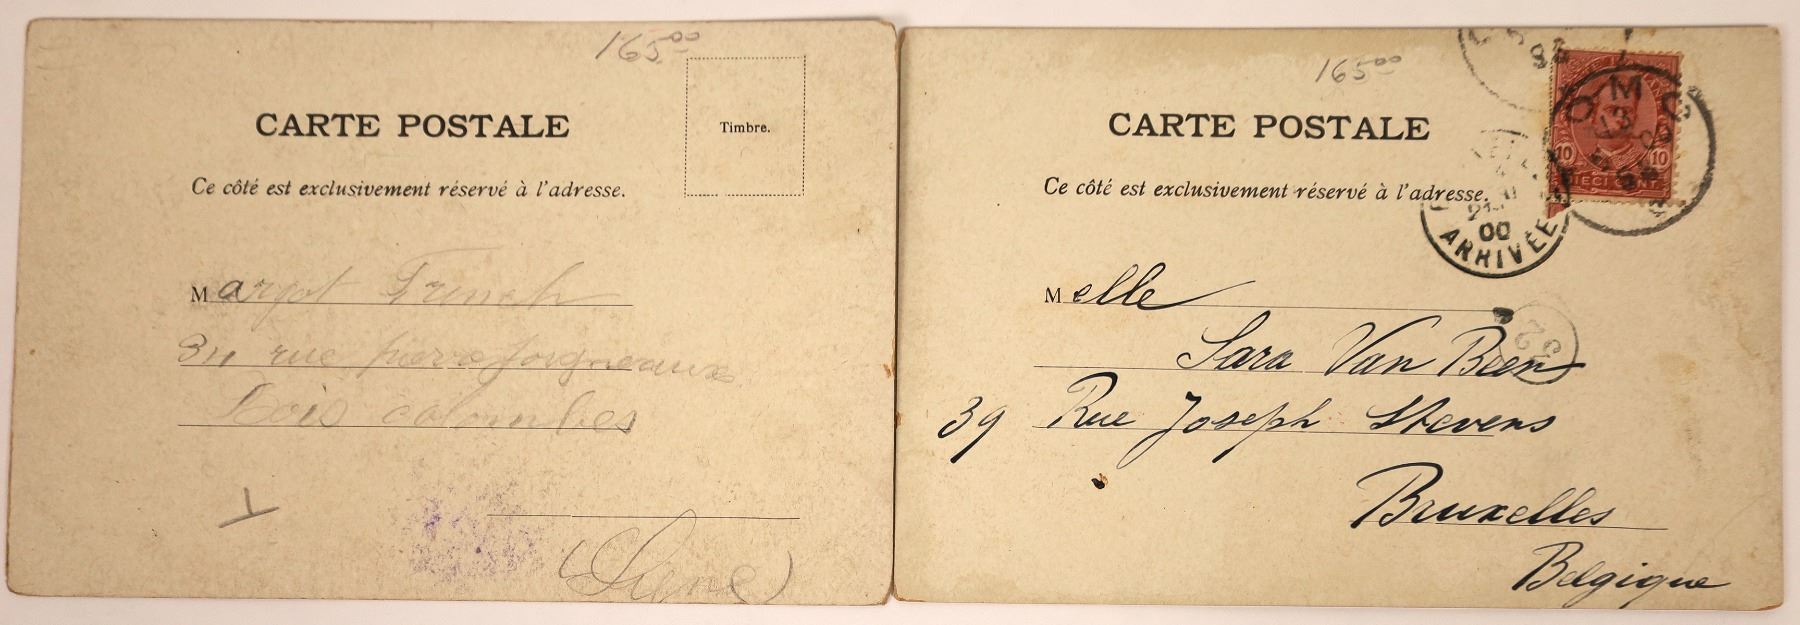 165.00
CARTE POSTALE
Timbre.
Ce côté est exclusivement réservé à l'adresse.
Margot French
34 rue pierre Joigneaux
Bois colombes
(Seine)
165.00
CARTE POSTALE
Ce côté est exclusivement réservé à l'adresse.
10 10
DIECI CENT
00
ARRIVÉE
Melle
Sara Van Beer
39 Rue Joseph Stevens
Bruxelles
Belgique